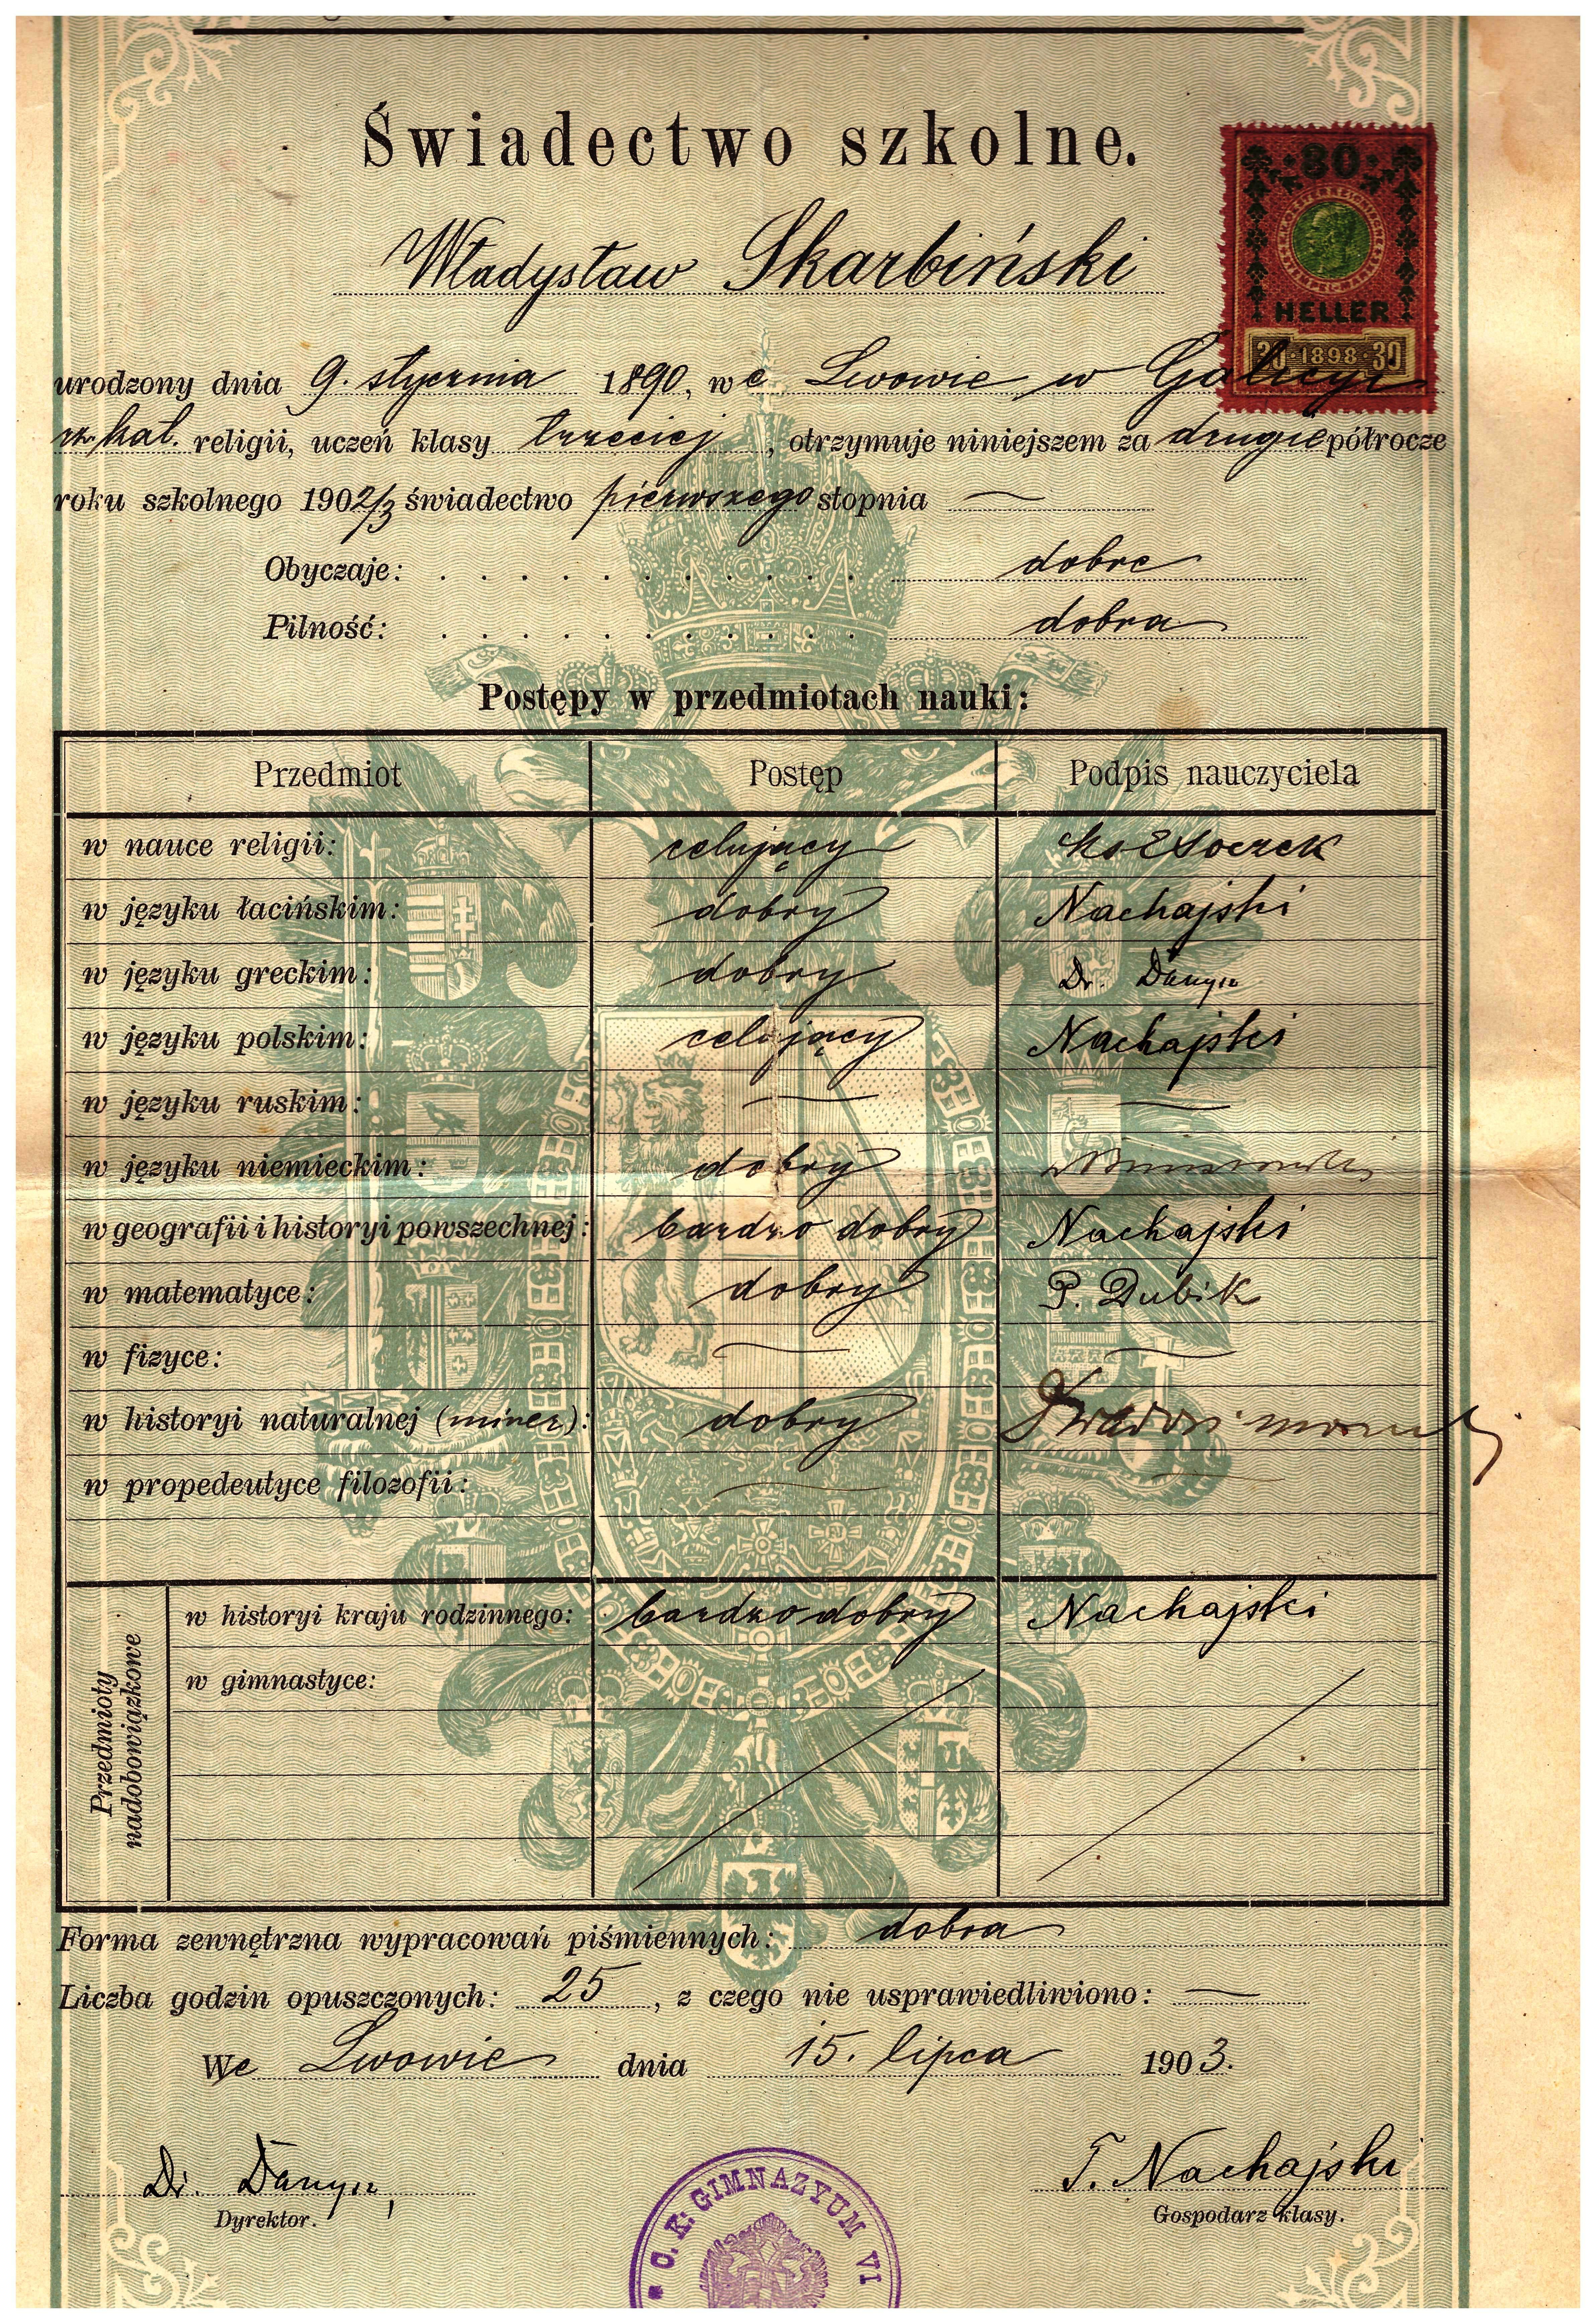 Świadectwo szkolne.
30
HELLER
30 · 1898 · 30
Władysław Skarbiński
urodzony dnia 9. stycznia 1890, we Lwowie w Galicyi
rz. kat. religii, uczeń klasy trzeciej, otrzymuje niniejszem za drugie półrocze
roku szkolnego 1902/3 świadectwo pierwszego stopnia —
Obyczaje: . . . . . . . . . . . dobre
Pilność: . . . . . . . . . . . dobra
Postępy w przedmiotach nauki:
Przedmiot Postęp Podpis nauczyciela
w nauce religii: celujący
w języku łacińskim: dobry Nachajski
w języku greckim: dobry Dr.
w języku polskim: celujący Nachajski
w języku ruskim: — —
w języku niemieckim: dobry
w geografii i historyi powszechnej: bardzo dobry Nachajski
w matematyce: dobry P. Dubik
w fizyce: — —
w historyi naturalnej (miner.): dobry
w propedeutyce filozofii: — —
Przedmioty nadobowiązkowe
w historyi kraju rodzinnego: bardzo dobry Nachajski
w gimnastyce:
Forma zewnętrzna wypracowań piśmiennych: dobra
Liczba godzin opuszczonych: 25, z czego nie usprawiedliwiono: —
We Lwowie dnia 15. lipca 1903.
Dr. T. Nachajski
Dyrektor. Gospodarz klasy.
* C. K. GIMNAZYUM VI